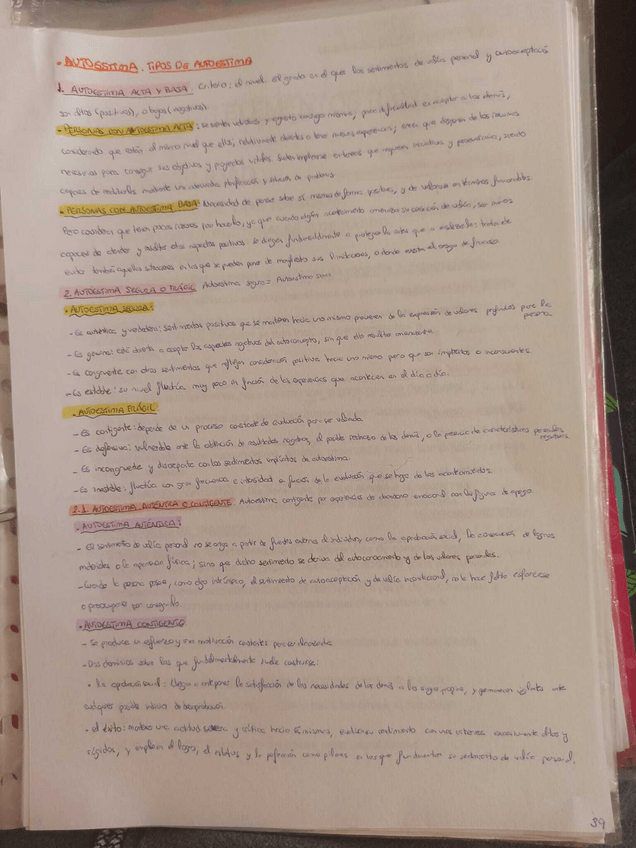 - AUTOESTIMA. TIPOS DE AUTOESTIMA
1. AUTOESTIMA ALTA Y BAJA. Criterio: el nivel o grado en el que los sentimientos de valía personal y autoaceptación
son altos (positivos), o bajos (negativos).
- PERSONAS CON AUTOESTIMA ALTA: se sienten valiosos y a gusto consigo mismos; poca dificultad en aceptar a los demás,
considerando que están al mismo nivel que ellos; abiertos a tener nuevas experiencias; creen que disponen de los recursos
necesarios para conseguir sus objetivos y proyectos vitales. Suelen implicarse en tareas que requieren iniciativa y persistencia, siendo
capaces de
- PERSONAS CON AUTOESTIMA BAJA: Necesidad de pensar sobre sí mismos de forma positiva, y de valorarse en términos favorables.
Pero consideran que tienen pocas razones para hacerlo, ya que cuando algún acontecimiento amenaza su sensación de valía, son menos
capaces de atender y resaltar otros aspectos positivos. Se dirigen fundamentalmente a proteger la autoestima que a ensalzarla: tratan de
evitar también aquellas situaciones en las que se puedan poner de manifiesto sus limitaciones, o donde exista el riesgo de fracaso.
2. AUTOESTIMA SEGURA O FRÁGIL. Autoestima segura = Autoestima sana
- AUTOESTIMA SEGURA:
- Es auténtica y verdadera: sentimientos positivos que se mantienen hacia uno mismo provienen de la expresión de valores profundos para la
persona.
- Es genuina: está abierta a aceptar los aspectos negativos del autoconcepto, sin que ello resulte amenazante.
- Es congruente con otros sentimientos que reflejan consideración positiva hacia uno mismo pero que son implícitos o inconscientes.
- Es estable: su nivel fluctúa muy poco en función de las experiencias que acontecen en el día a día.
- AUTOESTIMA FRÁGIL
- Es contingente: depende de un proceso constante de evaluación para ser validada.
- Es defensiva: vulnerable ante la obtención de resultados negativos, el posible rechazo de los demás, o la presencia de características personales
negativas.
- Es incongruente y discrepante con los sentimientos implícitos de autoestima.
- Es inestable: fluctúa con gran frecuencia e intensidad en función de la evaluación que se haga de los acontecimientos.
2.1. AUTOESTIMA AUTÉNTICA O CONTIGENTE. Autoestima contigente por experiencias de abandono emocional con las figuras de apego.
- AUTOESTIMA AUTÉNTICA:
- El sentimiento de valía personal no se origina a partir de fuentes externas al individuo, como la aprobación social, la consecución de logros
materiales o la apariencia física; sino que dicho sentimiento se deriva del autoconocimiento y de los valores personales.
- Cuando la persona posee, como algo intrínseco, el sentimiento de autoaceptación y de valía incondicional, no le hace falta esforzarse
o preocuparse por conseguirlo.
- AUTOESTIMA CONTIGENTE
- Se produce un esfuerzo y una motivación constantes por
- Dos dominios sobre los que fundamentalmente suele construirse:
· la aprobación social: llegan a anteponer la satisfacción de las necesidades de los demás a las suyas propias, y permanecen alerta ante
cualquier posible indicio de desaprobación.
· el éxito: mantienen una actitud severa y crítica hacia sí mismos, evalúan su rendimiento con criterios excesivamente altos y
rígidos, y emplean el logro, el estatus y la perfección como pilares en los que fundamentar su sentimiento de valía personal.
39